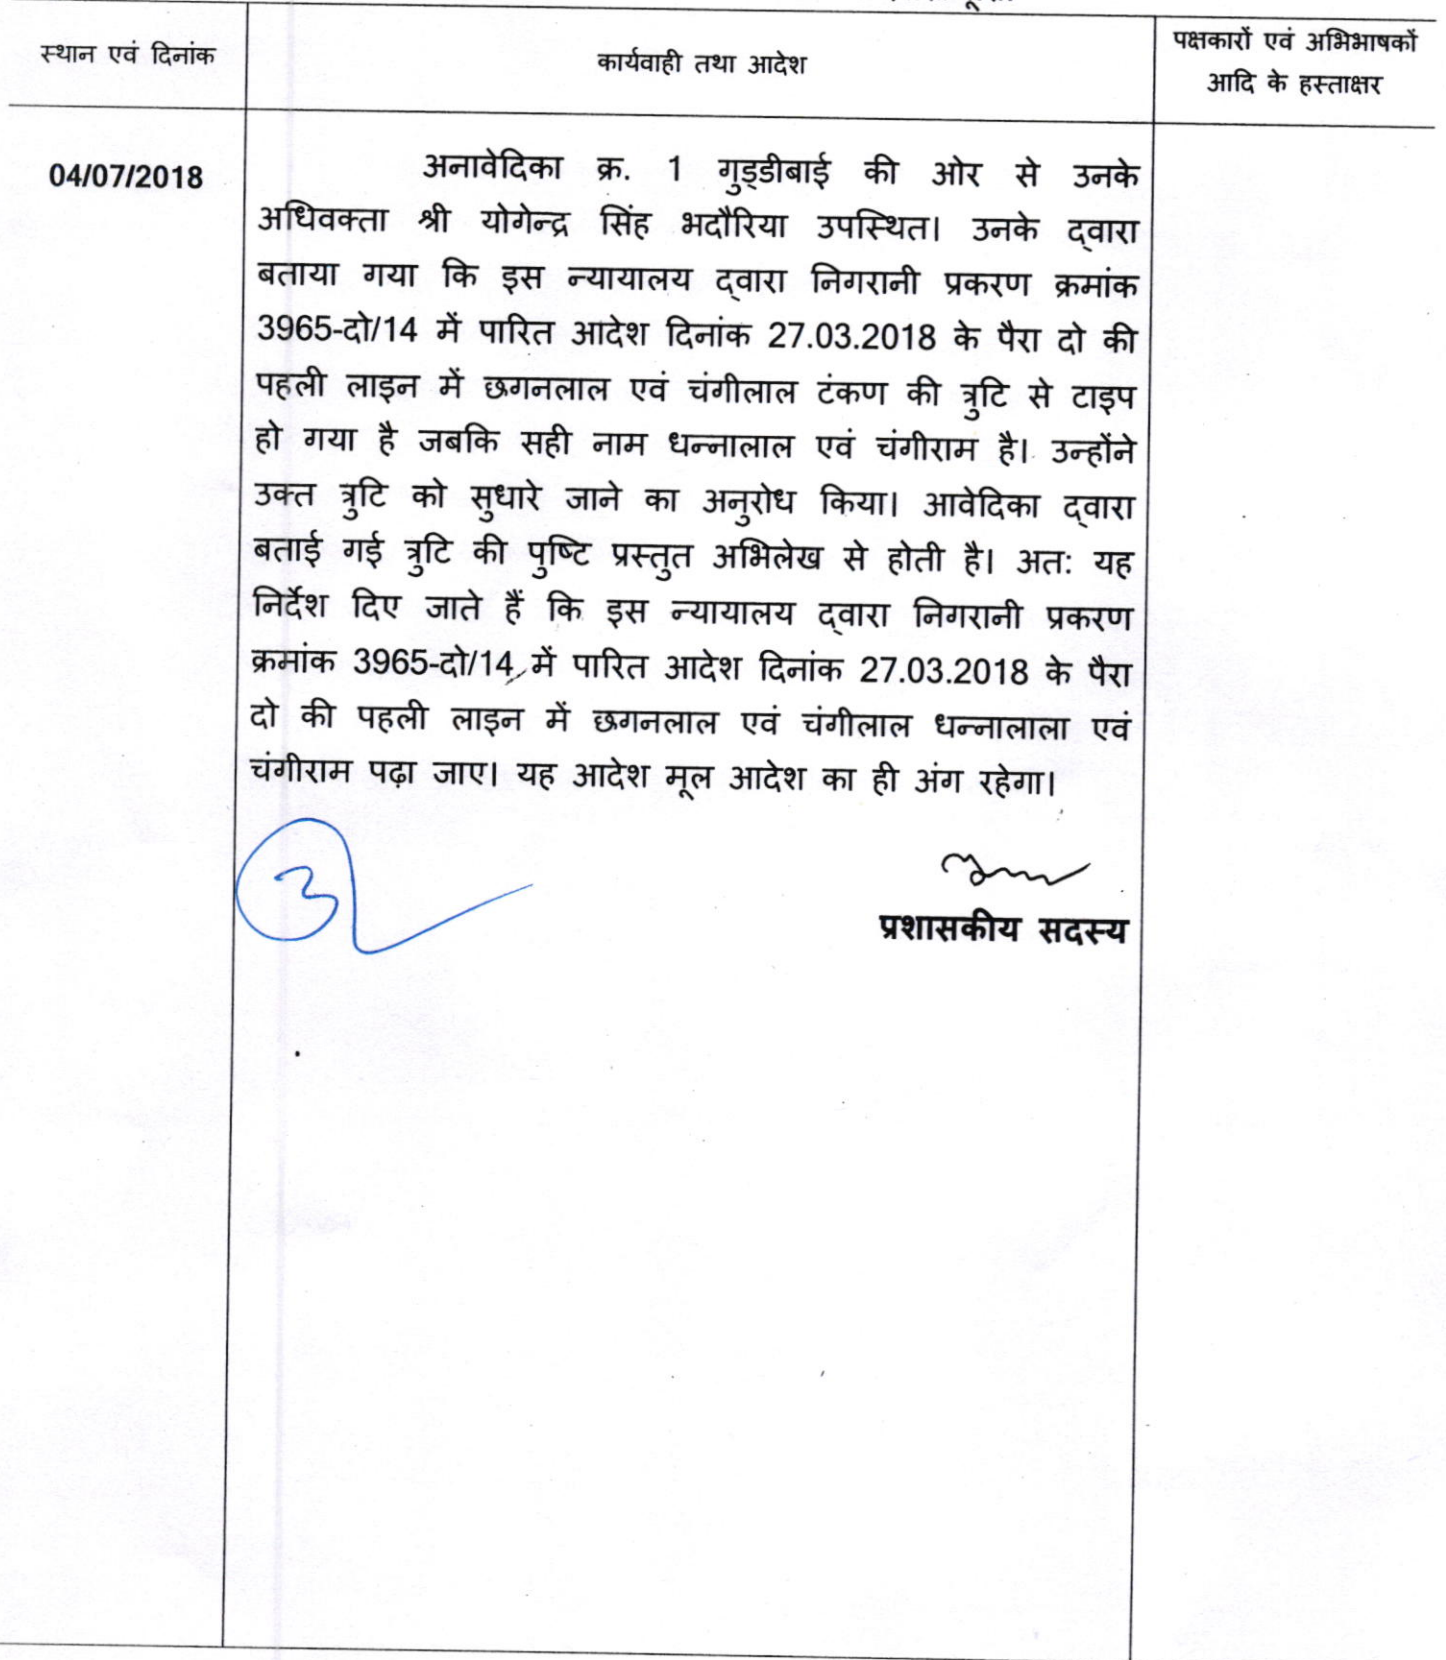 स्थान एवं दिनांक
कार्यवाही तथा आदेश
पक्षकारों एवं अभिभाषकों
आदि के हस्ताक्षर
04/07/2018
अनावेदिका क्र. 1 गुड्डीबाई की ओर से उनके
अधिवक्ता श्री योगेन्द्र सिंह भदौरिया उपस्थित। उनके द्वारा
बताया गया कि इस न्यायालय द्वारा निगरानी प्रकरण क्रमांक
3965-दो/14 में पारित आदेश दिनांक 27.03.2018 के पैरा दो की
पहली लाइन में छगनलाल एवं चंगीलाल टंकण की त्रुटि से टाइप
हो गया है जबकि सही नाम धन्नालाल एवं चंगीराम है। उन्होंने
उक्त त्रुटि को सुधारे जाने का अनुरोध किया। आवेदिका द्वारा
बताई गई त्रुटि की पुष्टि प्रस्तुत अभिलेख से होती है। अतः यह
निर्देश दिए जाते हैं कि इस न्यायालय द्वारा निगरानी प्रकरण
क्रमांक 3965-दो/14 में पारित आदेश दिनांक 27.03.2018 के पैरा
दो की पहली लाइन में छगनलाल एवं चंगीलाल धन्नालाला एवं
चंगीराम पढ़ा जाए। यह आदेश मूल आदेश का ही अंग रहेगा।
प्रशासकीय सदस्य